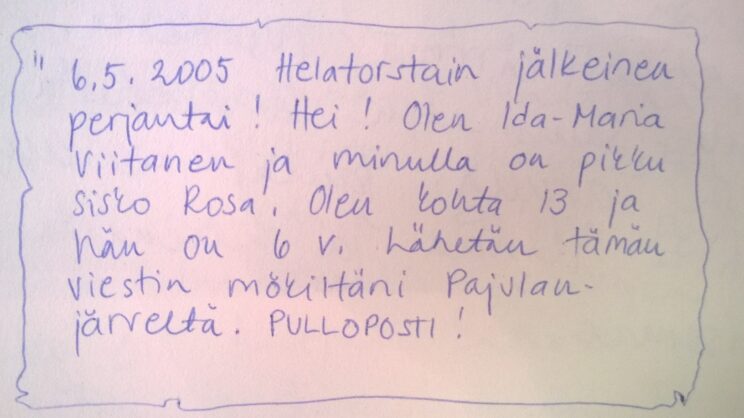 " 6.5.2005 Helatorstain jälkeinen
perjantai! Hei! Olen Ida-Maria
Viitanen ja minulla on pikku
sisko Rosa. Olen kohta 13 ja
hän on 6 v. Lähetän tämän
viestin mökiltäni Pajulan-
järveltä. PULLOPOSTI!